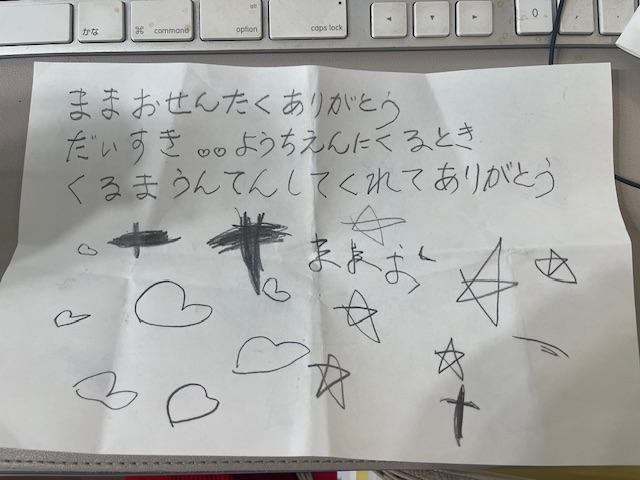 かな
⌘ command
option
caps lock
◀ ▼ ▲ ▶ 0 .
ままおせんたくありがとう
だいすき 。。ようちえんにくるとき
くるまうんてんしてくれてありがとう
ままお